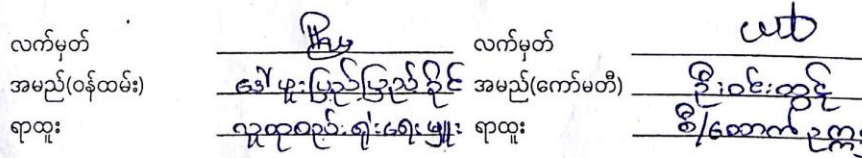 လက်မှတ် လက်မှတ်
အမည်(ဝန်ထမ်း) ဒေါ်ဖူးပြည့်ပြည့်ခိုင် အမည်(ကော်မတီ) ဦးဝင်းထွင့်
ရာထူး လူထုစည်းရုံးရေးမှူး ရာထူး စီ/ထောက် ဥက္ကဌ